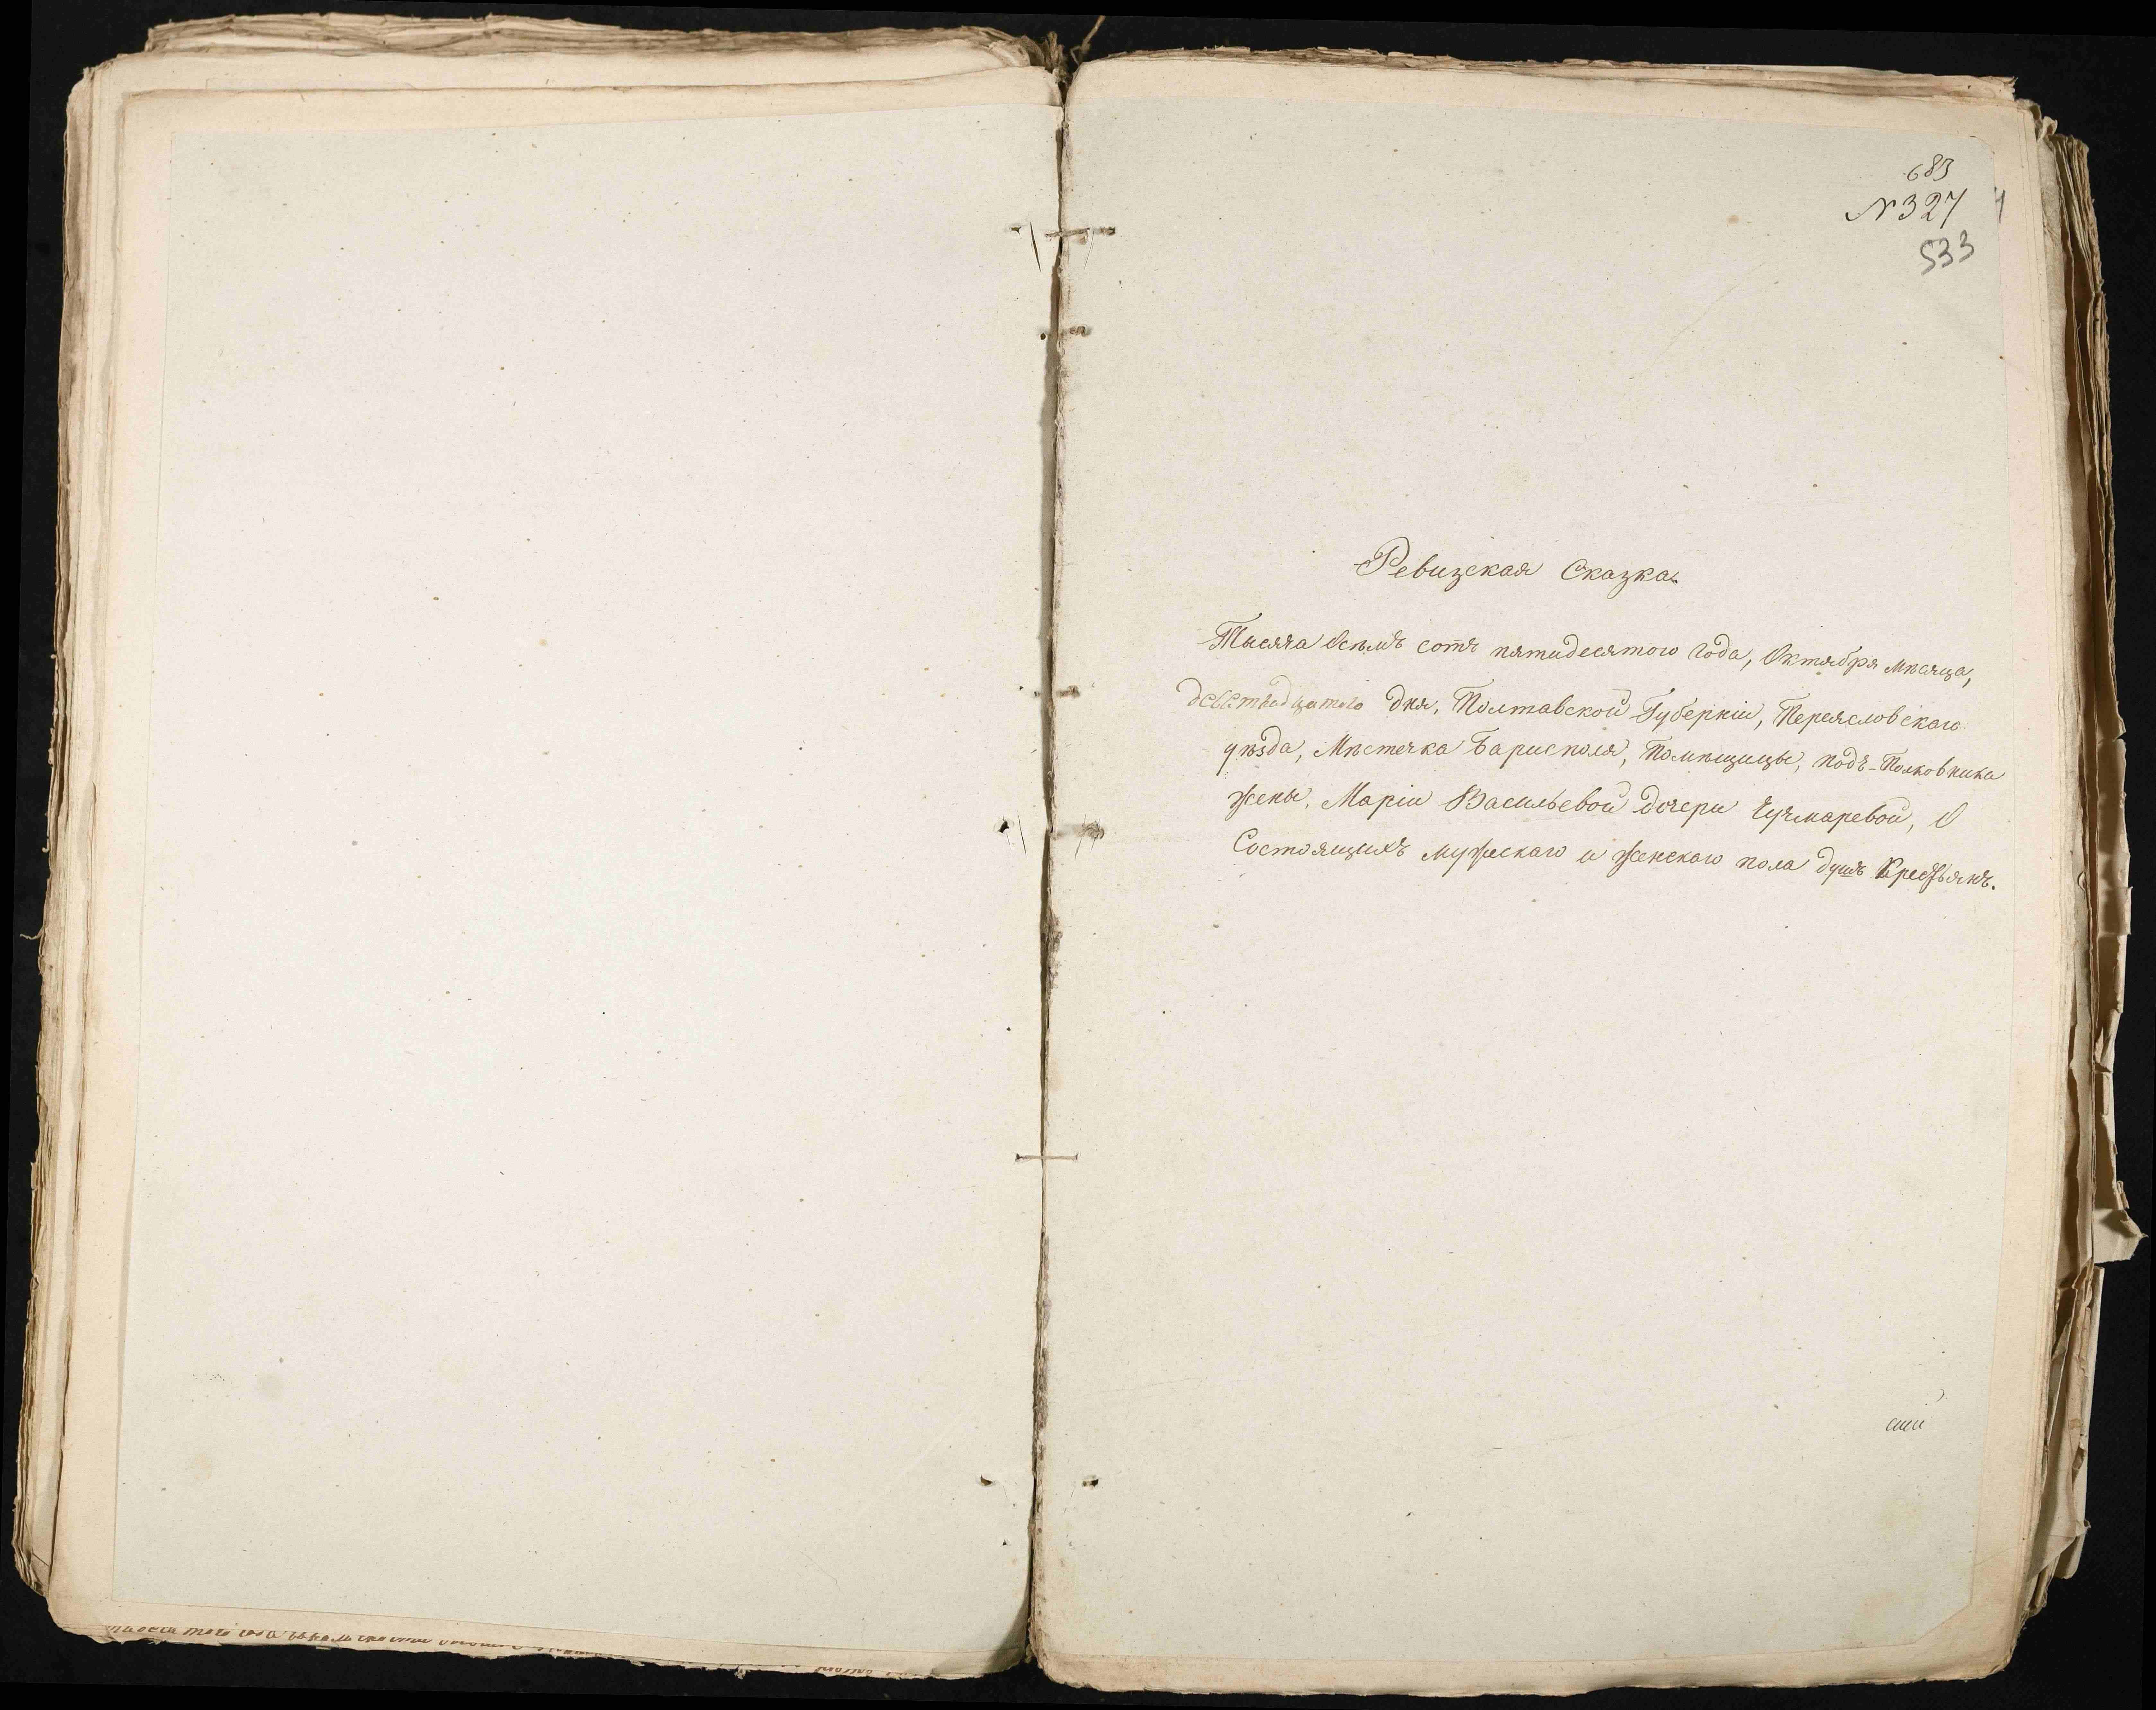 683
№ 327
533
Ревизская Сказка
Тысяча Осемъ сотъ пятидесятого года, Октября мѣсяца,
дня, Полтавской Губерніи, Переясловскаго
уѣзда, Мѣстечка Барисполя, Помѣщицы, подъ-Полковника
жены, Маріи Васильевой дочери Чучмаревой, О
Состоящихъ мужескаго и женскаго пола душъ Крестьянъ.